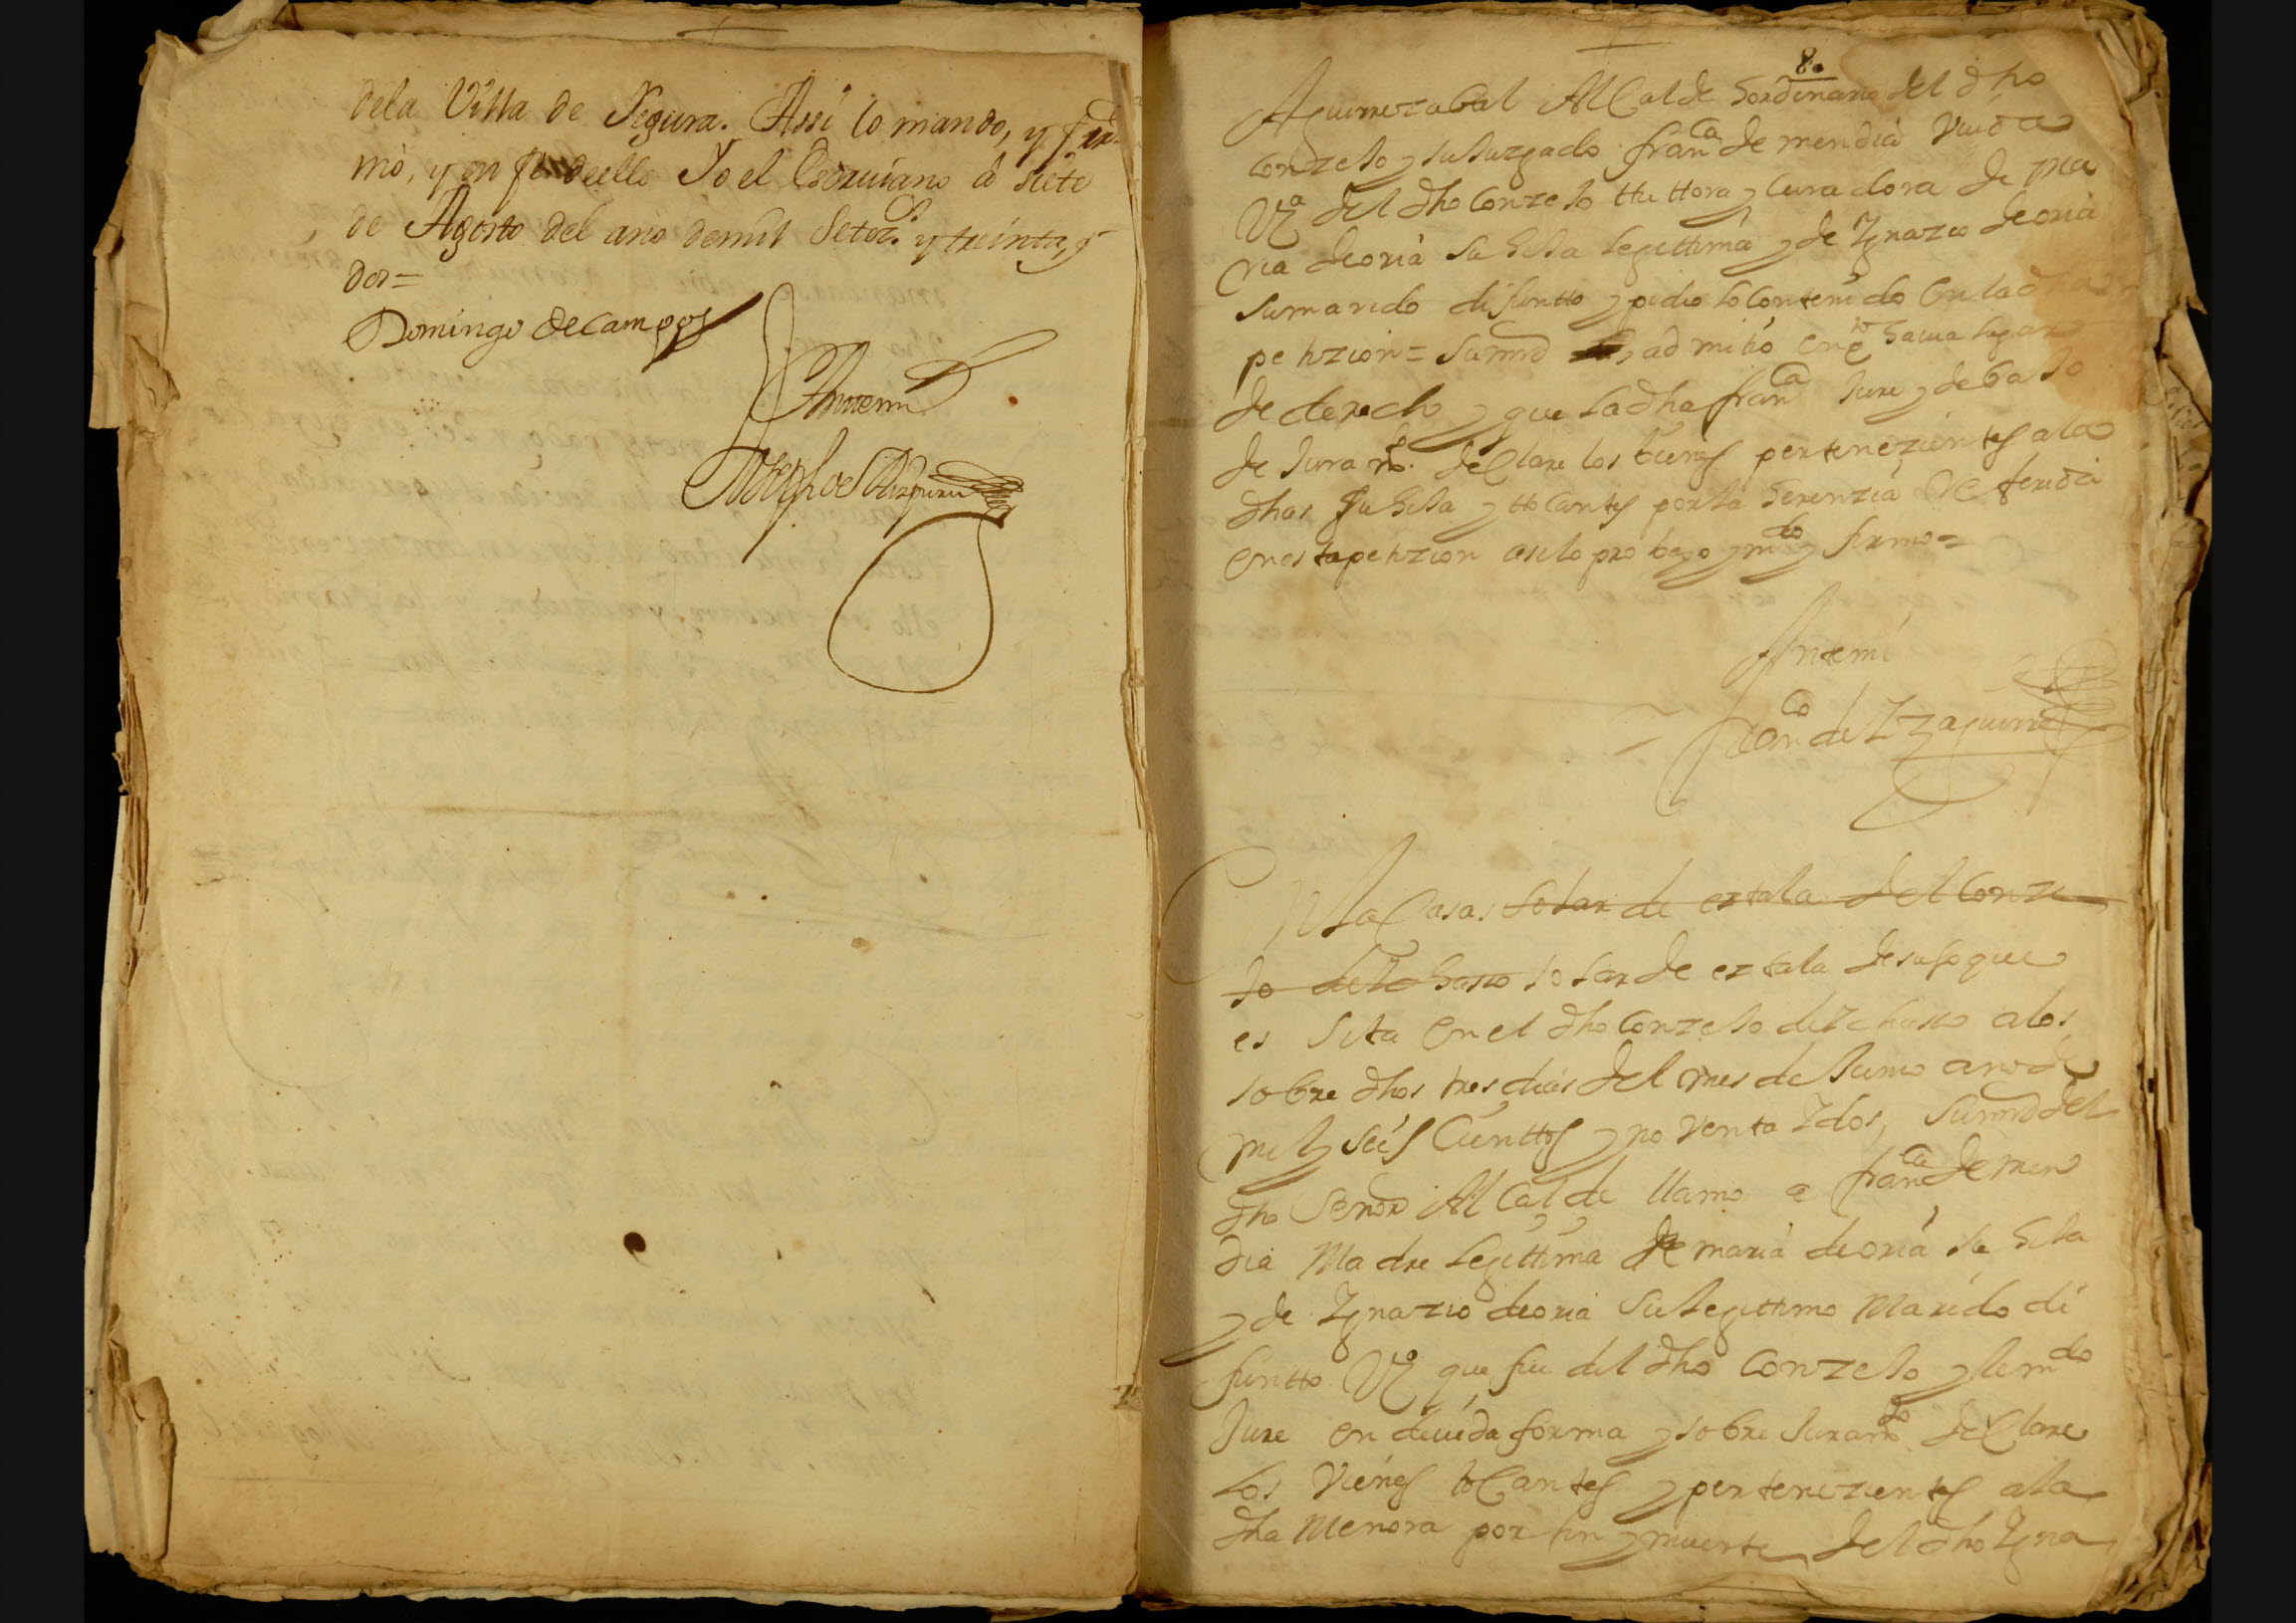 dela Villa de Segura. Assi lo mando, y fir-
mò, y en fe deello Yo el Escriuano à siete
de Agosto del año demil Setecs. y treinta, y
dos=
Domingo de Campos
Antemi
Joseph de Aizpuru
8.
Aguirrezabal Alcalde hordinario del dho
Conzejo y su Juzgado franca de mendia Viuda
Vza del dho Conzejo ttuttora y Curadora de ma
ria deoria su hija legittima y de Ygnazio deoria
su marido difuntto y pidio lo Contenido en la dha
petizion = su mrd admitió en qto haua lugar
de derecho y que la dha franca Jure y debajo
de Juramto. declare los bienes pertenezientes ala
dha su hija y ttocantes por la herenzia Referida
en esta petizion asi lo probeyo y mdo y firmo =
Antemi
Franco de Yzaguirre
En la Casa solar de eztala del Conze
jo de Ychaso solar de eztala desusoque
es sita en el dho Conzejo de Ychasso alos
sobre dhos tres dias del mes de Junio año de
mil y seis Cienttos y noventa Y dos, su mrd del
dho Señor Alcalde llamo a franca de men
dia Madre legittima de maria deoria su hija
y de Ygnazio deoria su legittimo Marido di
funtto Vzo que fue del dho Conzejo y le mdo
Jure en deuida forma y sobre Juramto declare
los Vienes toCantes y pertenezientes ala
dha Menora por fin y muerte del dho Ygna